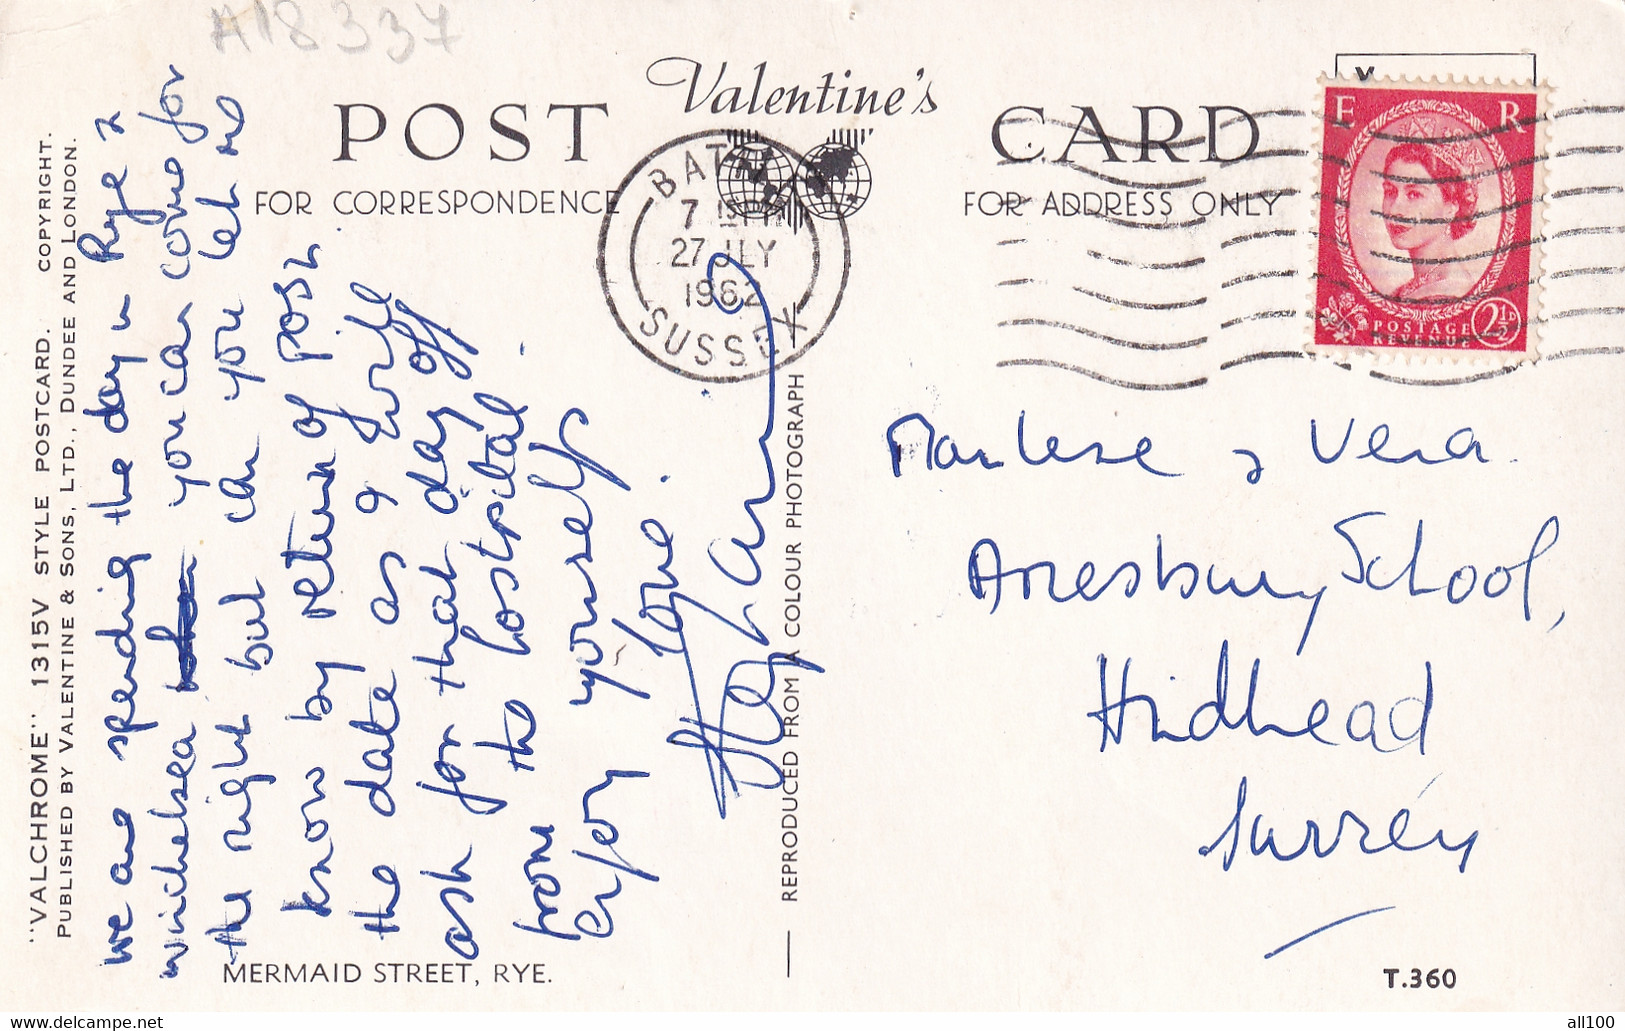 A18337
"VALCHROME" 1315V STYLE POSTCARD. COPYRIGHT.
PUBLISHED BY VALENTINE & SONS, LTD., DUNDEE AND LONDON.
Valentine's
POST CARD
FOR CORRESPONDENCE
FOR ADDRESS ONLY
BATTLE
27 JLY
1962
SUSSEX
E R
POSTAGE
REVENUE
2½D
we are spending the day in Rye &
winchelsea you can come for
the night but can you let me
know by return of post
the date as I will
ask for that day off
from the hostpital.
Enjoy yourselfs
love
Marlese & Vera.
Amesbury School,
Hindhead
Surrey
REPRODUCED FROM A COLOUR PHOTOGRAPH
MERMAID STREET, RYE.
T.360
delcampe.net
all100